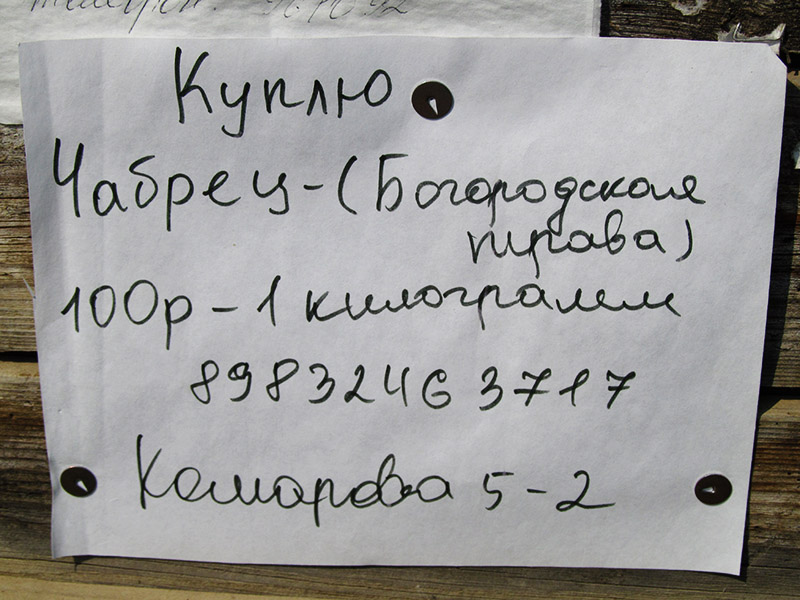 Куплю
Чабрец-(Богородская
трава)
100р-1 килограмм
89832463717
Комарова 5-2